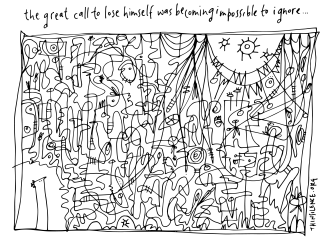 the great call to lose himself was becoming impossible to ignore...